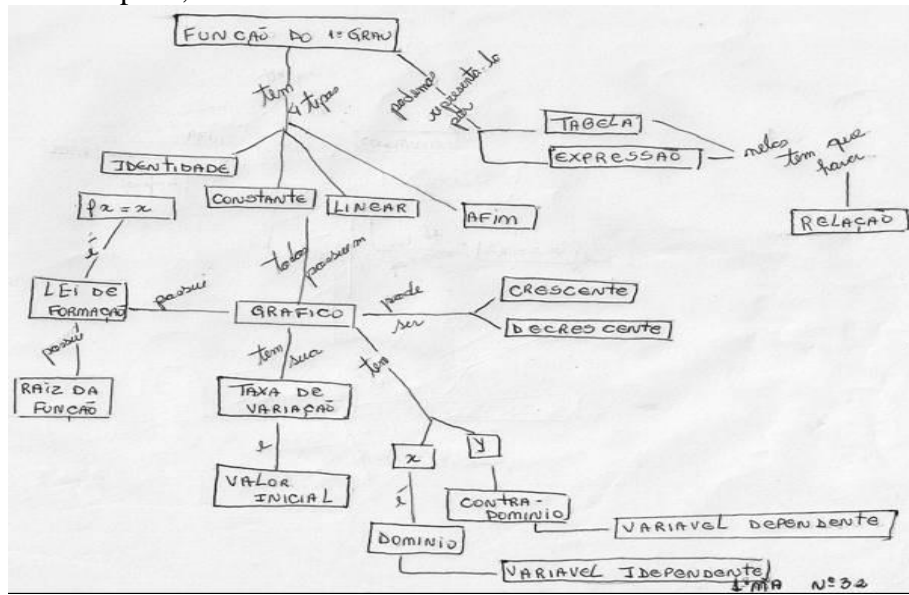 FUNCÃO DO 1º GRAU
tem
4 tipos
podemos
representa-lo
por
TABELA
EXPRESSÃO
nelas
tem que
haver
RELAÇÃO
IDENTIDADE
CONSTANTE
LINEAR
AFIM
fx = x
é
LEI DE
FORMAÇÃO
possui
possui
RAIZ DA
FUNCÃO
todos
possuem
GRAFICO
pode
ser
CRESCENTE
DECRESCENTE
tem
sua
TAXA DE
VARIAÇÃO
e
VALOR
INICIAL
tem
x
y
é
DOMINIO
CONTRA-
DOMINIO
VARIAVEL DEPENDENTE
VARIAVEL IDEPENDENTE
1ºMA Nº 32